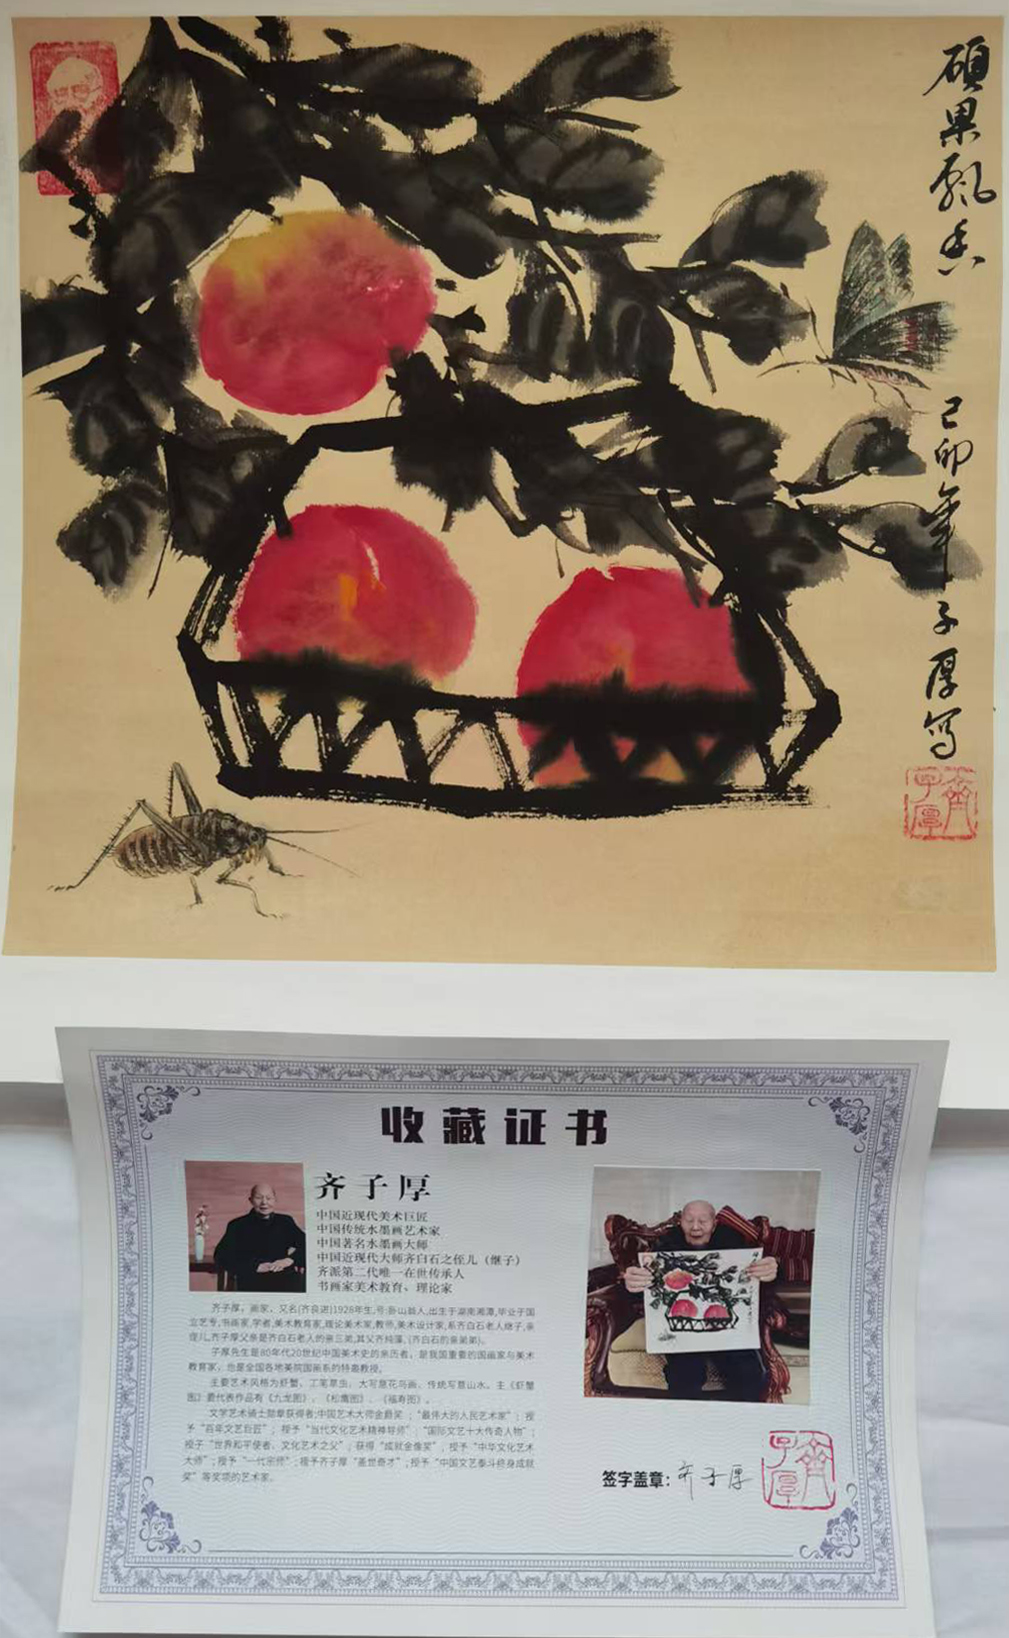 硕果飘香
己卯年子厚写
齐子厚
收藏证书
齐子厚
中国近现代美术巨匠
中国传统水墨画艺术家
中国著名水墨画大师
中国近现代大师齐白石之侄儿（继子）
齐派第二代唯一在世传承人
书画家美术教育、理论家
齐子厚，画家，又名(齐良进)1928年生,号:卧山翁人,出生于湖南湘潭,毕业于国
立艺专,书画家,学者,美术教育家,理论美术家,教师,美术设计家,系齐白石老人继子,亲
侄儿,齐子厚父亲是齐白石老人的亲三弟,其父齐纯藻,(齐白石的亲弟弟)。
子厚先生是80年代20世纪中国美术史的亲历者，是我国重要的国画家与美术
教育家，也是全国各地美院国画系的特高教授。
主要艺术风格为虾蟹，工笔草虫，大写意花鸟画，传统写意山水。主《虾蟹
图》最代表作品有《九龙图》，《松鹰图》，《福寿图》。
文学艺术骑士勋章获得者;中国艺术大师金爵奖；“最伟大的人民艺术家”；授
予“百年文艺巨匠”；授予“当代文化艺术精神导师”；“国际文艺十大传奇人物”；
授子“世界和平使者、文化艺术之父”；获得“成就金像奖”，授予“中华文化艺术
大师”；授予“一代宗师”；授予齐子厚“盖世奇才”；授予“中国文艺泰斗终身成就
奖”等奖项的艺术家。
签字盖章：齐子厚
齐子厚